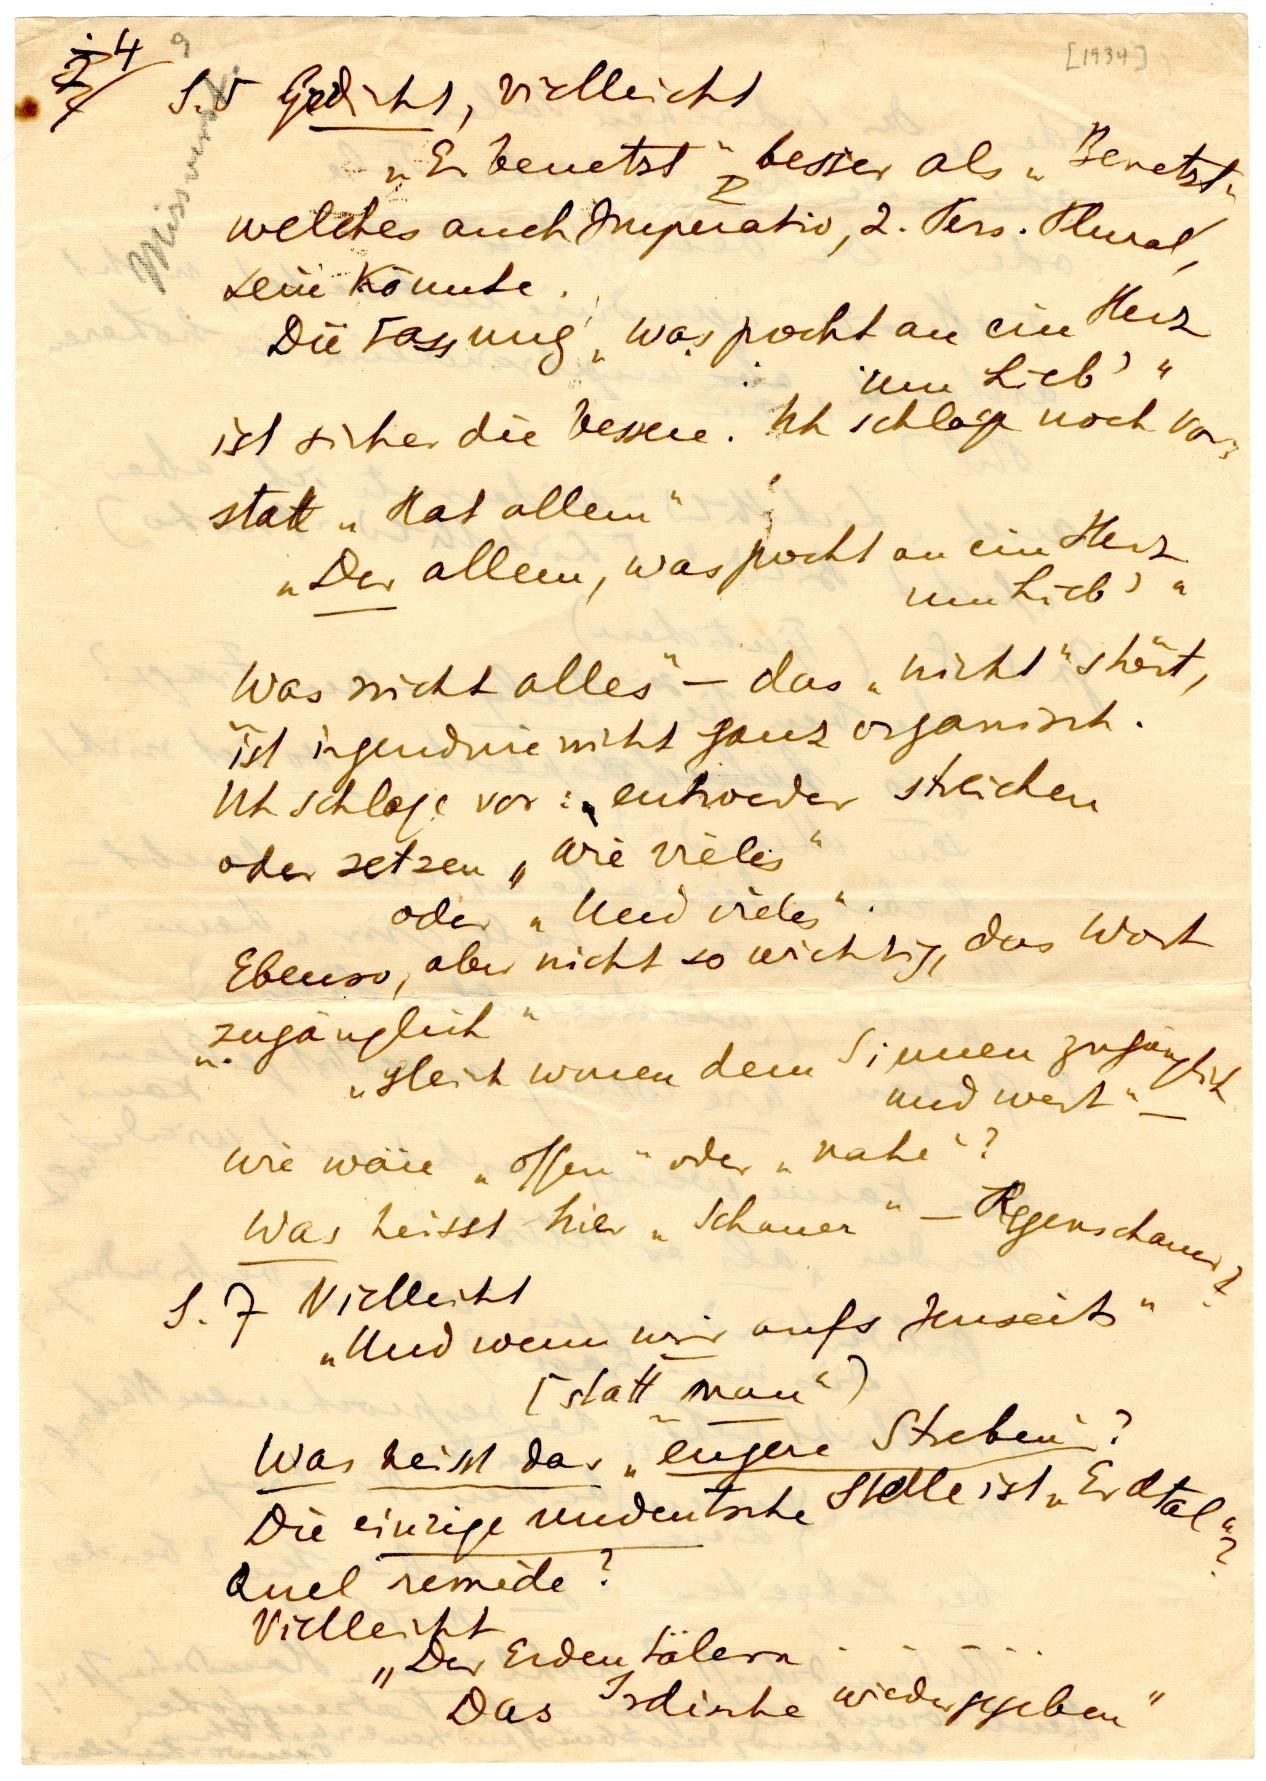 4
[1934]
S. 5 Gedicht, vielleicht
„Er benetzt" besser als „Benetzt"
welches auch Imperativ, 2. Pers. Plural,
sein könnte.
Die Fassung „was pocht an ein Herz
um Lieb' "
ist sicher die bessere. Ich schlage noch vor:
statt „Hat allem"
„Der allem, was pocht an ein Herz
um Lieb' "
Was nicht alles" – das „nicht" stört,
ist irgendwie nicht ganz organisch.
Ich schlage vor: entweder streichen
oder setzen „Wie vieles"
oder „Und vieles".
Ebenso, aber nicht so wichtig, das Wort
„zugänglich"
„gleich waren dem Sinnen zugänglich
und wert" –
wie wäre „offen" oder „nahe"?
Was heisst hier „Schauer" – Regenschauer?
S. 7 Vielleicht
„Und wenn wir aufs Jenseits"
(statt „man")
Was heisst das „engere Streben"?
Die einzige undeutsche Stelle ist „Erdtal"?
Quel remède?
Vielleicht
„Der Erden Tälern
Das Irdische wiedergegeben"